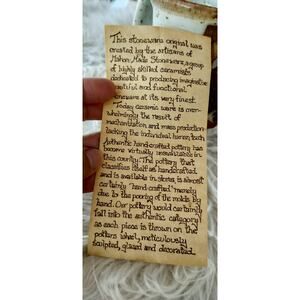 This stoneware original was
created by the artisans of
Mahon Made Stoneware, a group
of highly skilled ceramists
dedicated to producing imaginative
beautiful and functional
stoneware at its very finest.
Today ceramic ware is over-
whelmingly the result of
mechanization and mass production
lacking the individual human touch
Authentic hand-crafted pottery has
become virtually unavailable in
this country. The pottery that
classifies itself as handcrafted
and is available in stores, is almost
certainly "hand crafted" merely
due to the pouring of the molds by
hand. Our pottery would certainly
fall into the authentic category
as each piece is thrown on the
potters wheel, meticulously
sculpted, glazed and decorated.